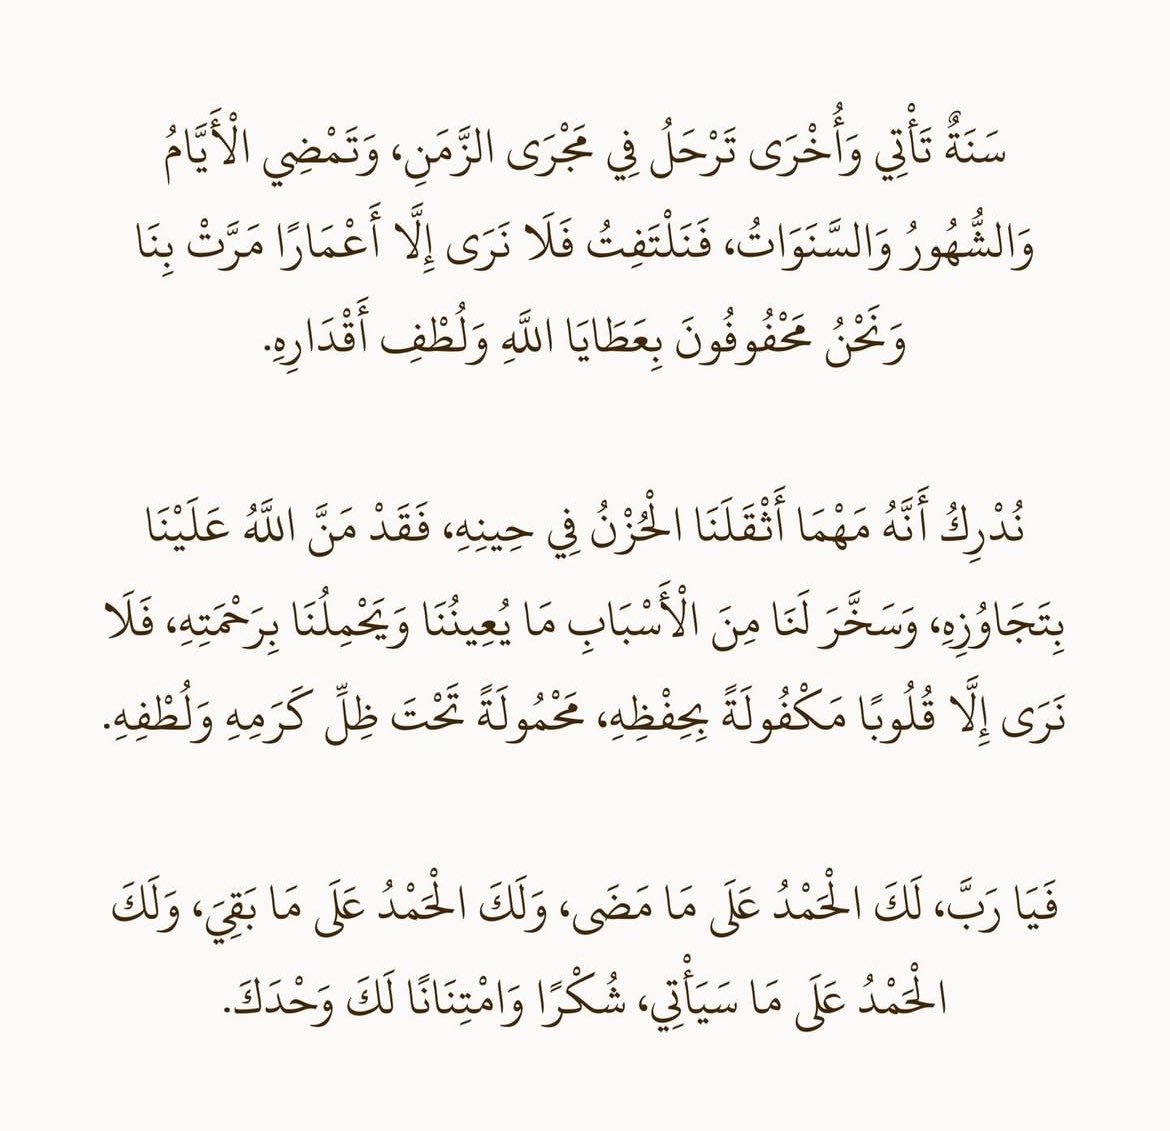 سَنَةٌ تَأْتِي وَأُخْرَى تَرْحَلُ فِي مَجْرَى الزَّمَنِ، وَتَمْضِي الْأَيَّامُ
وَالشُّهُورُ وَالسَّنَوَاتُ، فَنَلْتَفِتُ فَلَا نَرَى إِلَّا أَعْمَارًا مَرَّتْ بِنَا
وَنَحْنُ مَحْفُوفُونَ بِعَطَايَا اللَّهِ وَلُطْفِ أَقْدَارِهِ.
نُدْرِكُ أَنَّهُ مَهْمَا أَثْقَلَنَا الْحُزْنُ فِي حِينِهِ، فَقَدْ مَنَّ اللَّهُ عَلَيْنَا
بِتَجَاوُزِهِ، وَسَخَّرَ لَنَا مِنَ الْأَسْبَابِ مَا يُعِينُنَا وَيَحْمِلُنَا بِرَحْمَتِهِ، فَلَا
نَرَى إِلَّا قُلُوبًا مَكْفُولَةً بِحِفْظِهِ، مَحْمُولَةً تَحْتَ ظِلِّ كَرَمِهِ وَلُطْفِهِ.
فَيَا رَبَّ، لَكَ الْحَمْدُ عَلَى مَا مَضَى، وَلَكَ الْحَمْدُ عَلَى مَا بَقِيَ، وَلَكَ
الْحَمْدُ عَلَى مَا سَيَأْتِي، شُكْرًا وَامْتِنَانًا لَكَ وَحْدَكَ.